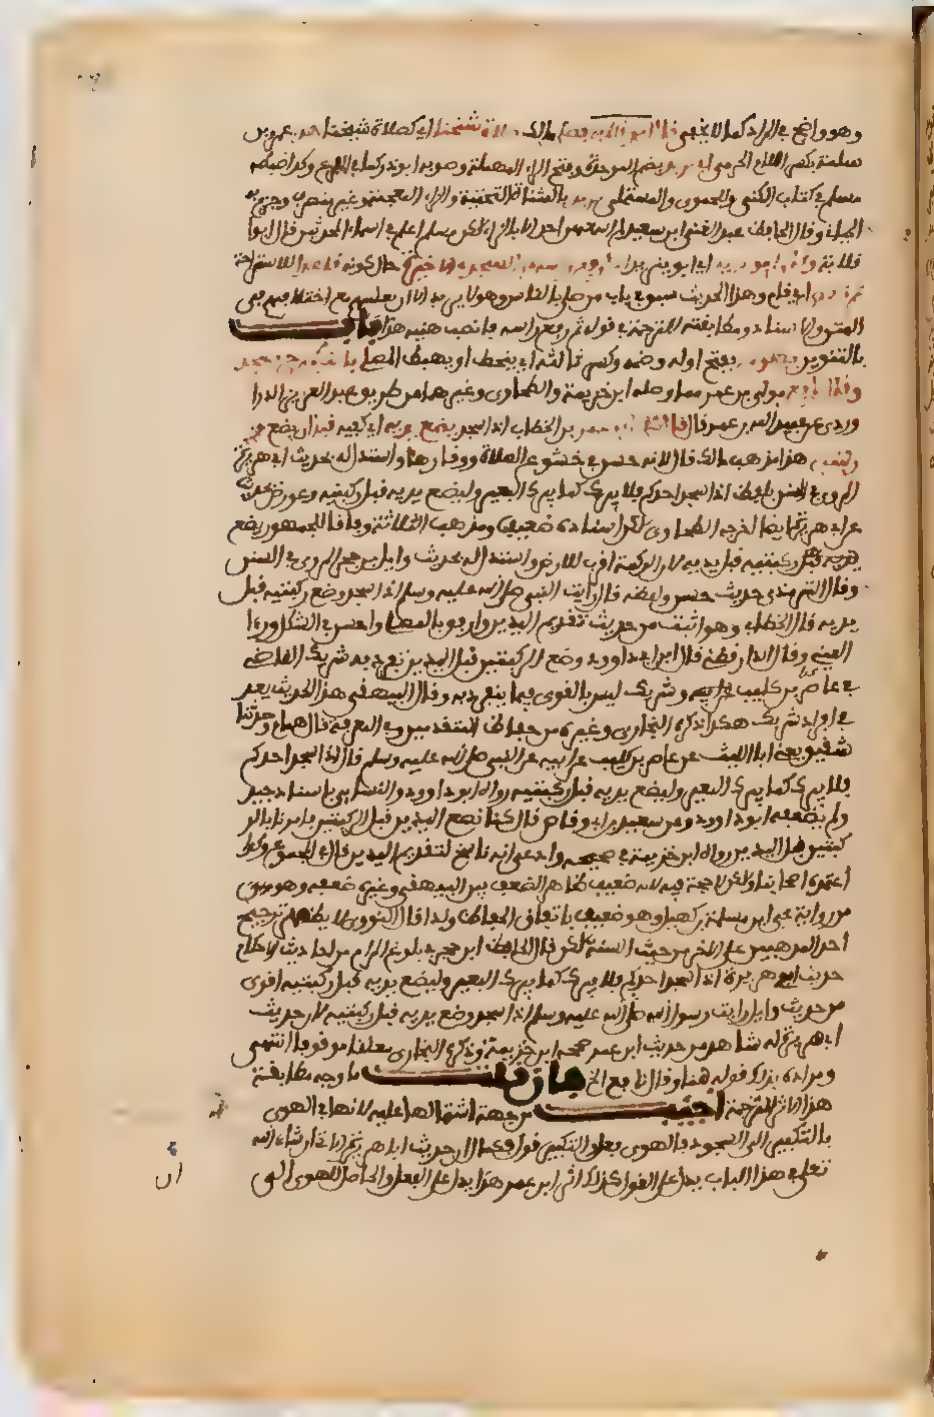 وهو واضح في المراد كما لا يخفى قال ابو قلابة فصلى بنا صلاة شيخنا اي كصلاة شيخنا هذا عمرو بن
سلمة بكسر اللام الجرمي ابي بريد بضم الموحدة وفتح الراء المهملة وصوبه ابو ذر كما في الفرع وكذا ضبطه
مسلم في كتاب الكنى وللحموي والمستملي يزيد بالمثناة التحتية والزاء المعجمة وغير منصرف وجزم به
الجياني وقال الحافظ عبد الغني ابن سعيد لم اسمعه من احد الا بالزاي لكن مسلم اعلم في اسماء المحدثين قال ابو
قلابة وكان ابو بريد اي او يزيد اذا رفع راسه من السجدة الاخيرة حال كونه قاعدا للاستراحة
ثم نهض اي قام وهذا الحديث سبق في باب من صلى بالناس وهو لا يريد الا ان يعلمهم مع اختلاف في
المتن والاسناد ومطابقته للترجمة في قوله ثم رفع راسه فانصب هنية هذا باب
بالتنوين يهوي بفتح اوله وضمه وكسر ثالثه اي ينحط او يهبط المصلي بالتكبير حين يسجد
وقال نافع مولى بن عمر مما وصله ابن خزيمة والطحاوي وغيرهما من طريق عبد العزيز الدرا
وردي عن عبيد الله بن عمر قال كان ابن عمر بن الخطاب اذا سجد يضع يديه اي كفيه قبل ان يضع
ركبتيه هذا مذهب مالك قال لانه احسن في خشوع الصلاة ووقارها واستدل له بحديث ابي هريرة
المروي في السنن بلفظ اذا سجد احدكم فلا يبرك كما يبرك البعير وليضع يديه قبل ركبتيه وعورض بحديث
عن ابي هريرة ايضا اخرجه الطحاوي لكن اسناده ضعيف ومذهب الثلاثة وفاقا للجمهور يضع
ركبتيه قبل يديه لان الركبة اقرب للارض واستدل له بحديث وايل بن حجر المروي في السنن
وقال الترمذي حديث حسن ولفظه قال رايت النبي صلى الله عليه وسلم اذا سجد وضع ركبتيه قبل
يديه قال الخطابي وهو اثبت من حديث تقديم اليدين وارفق بالمصلي واحسن في الشكل وراي
العين وقال الدارقطني قال ابن ابي داوود وضع الركبتين قبل اليدين تفرد به شريك القاضي
عن عاصم بن كليب وشريك ليس بالقوي فيما ينفرد به وقال البيهقي هذا الحديث يعد
في افراد شريك هكذا ذكره البخاري وغيره من حفاظ المتقدمين وفي المعرفة قال همام وحدثنا
شقيق يعني ابا الليث عن عاصم بن كليب عن ابيه عن النبي صلى الله عليه وسلم قال اذا سجد احدكم
فلا يبرك كما يبرك البعير وليضع يديه قبل ركبتيه رواه ابو داوود والنسائي باسناد جيد
ولم يضعفه ابو داوود وعن سعد بن ابي وقاص قال كنا نضع اليدين قبل الركبتين فامرنا بالر
كبتين قبل اليدين رواه ابن خزيمة في صحيحه وادعى انه ناسخ لتقديم اليدين قال في المجموع وكذا
اعتمده اصحابنا ولكن لا حجة فيه لانه ضعيف ظاهر الضعف بين البيهقي وغيره ضعفه وهو
من رواية يحيى ابن سلمة بن كهيل وهو ضعيف باتفاق الحفاظ ولذا قال النووي لا يظهر ترجيح
احد المذهبين على الاخر من حيث السنة لكن قال الحافظ ابن حجر في بلوغ المرام من احاديث الاحكام
حديث ابي هريرة اذا سجد احدكم فلا يبرك كما يبرك البعير وليضع يديه قبل ركبتيه اقوى
من حديث وايل رايت رسول الله صلى الله عليه وسلم اذا سجد وضع يديه قبل ركبتيه لان حديث
ابي هريرة له شاهد من حديث ابن عمر صححه ابن خزيمة وذكره البخاري معلقا موقوفا انتهى
ومراده بذلك قوله هنا وقال نافع الخ فان قلت ما وجه مطابقة
هذا الاثر للترجمة اجيب من جهة اشتمالها عليه لانها في الهوي
بالتكبير الى السجود فالهوي فعل والتكبير قول فكما ان حديث ابي هريرة الاتي ان شاء الله
تعالى في هذا الباب يدل على القول كذلك اثر ابن عمر هذا يدل على الفعل والحاصل ان للهوي الى
ان